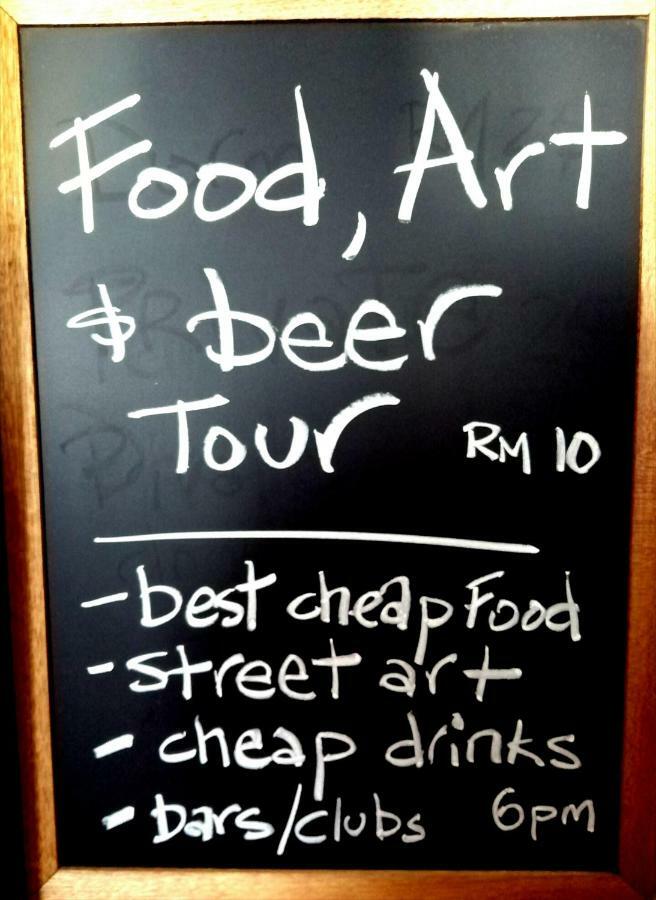 Food, Art
& beer
Tour RM 10
- best cheap Food
- street art
- cheap drinks
- bars/clubs 6pm